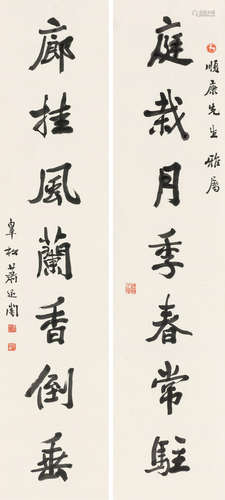 庭栽月季春常駐
順康先生雅屬
廊挂風蘭香倒垂
皋松蕭退闇